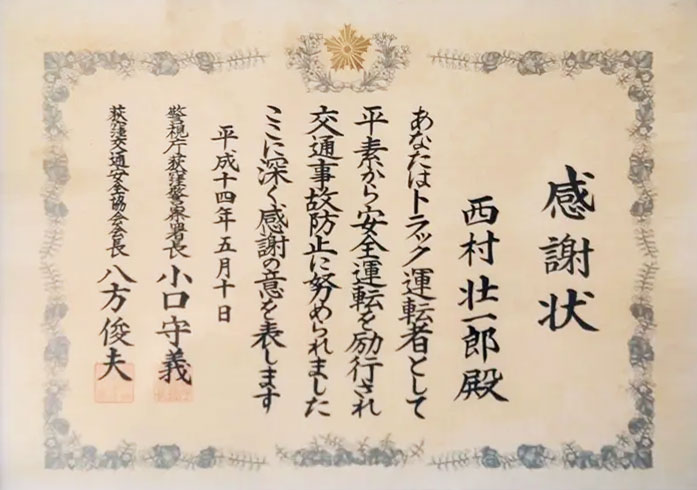 感謝状
西村壮一郎殿
あなたはトラック運転者として
平素から安全運転を励行され
交通事故防止に努められました
ここに深く感謝の意を表します
平成十四年五月十日
警視庁荻窪警察署長 小口守義
荻窪交通安全協会会長 八方俊夫